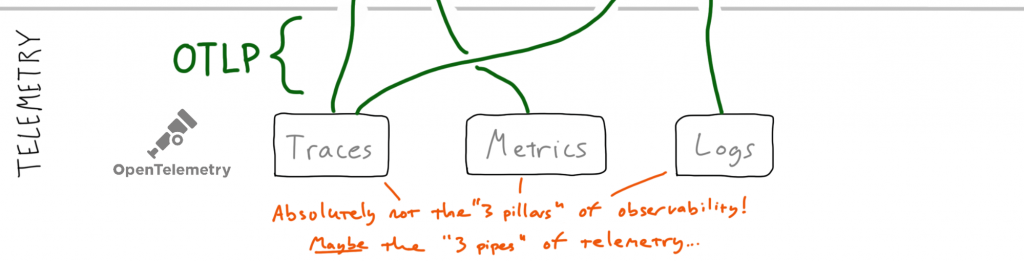 TELEMETRY
OTLP
OpenTelemetry
Traces
Metrics
Logs
Absolutely not the "3 pillars" of observability!
Maybe the "3 pipes" of telemetry...